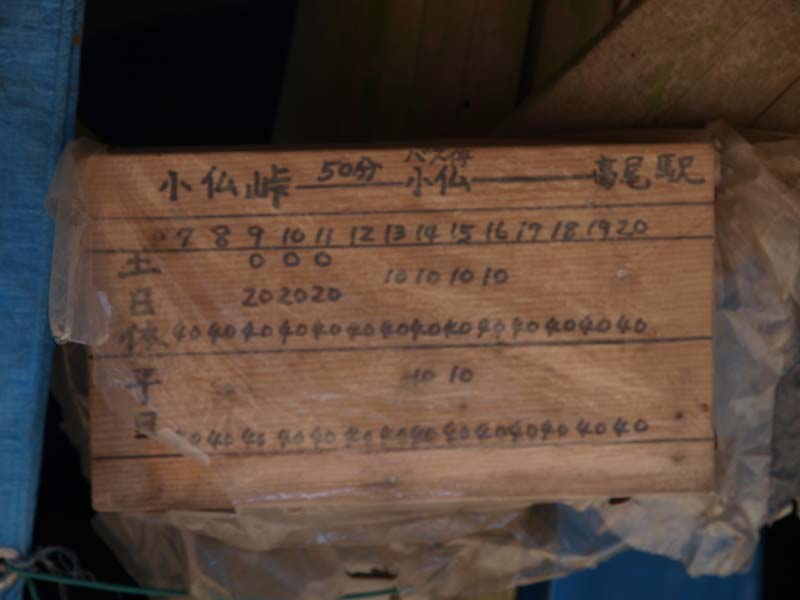 バス停
小仏峠 50分 小仏 高尾駅
7 8 9 10 11 12 13 14 15 16 17 18 19 20
土 0 0 0
10 10 10 10
日 20 20 20
休 40 40 40 40 40 40 40 40 40 40 40 40 40 40
平 10 10
日 40 40 40 40 40 40 40 40 40 40 40 40 40 40